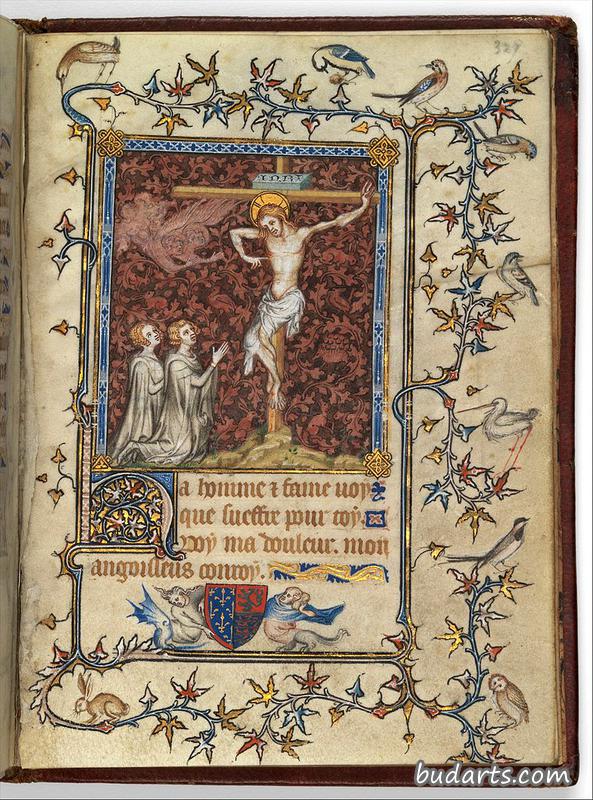 329
INRI
Ha homme ⁊ fame uoy
que sueffre pour toy.
voy ma douleur. mon
angoisseus conroy.
budarts.com